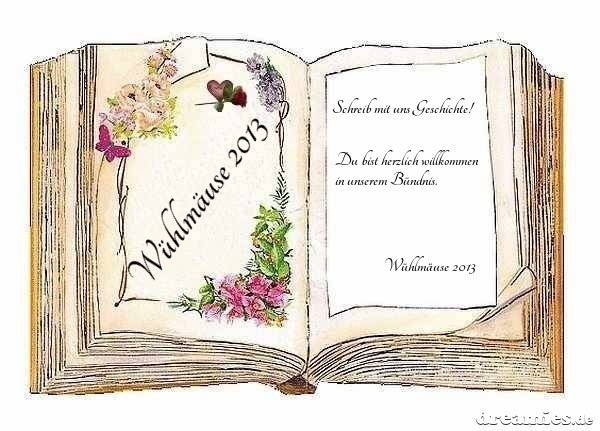 Wühlmäuse 2013
Schreib mit uns Geschichte!
Du bist herzlich willkommen
in unserem Bündnis.
Wühlmäuse 2013
dreamies.de